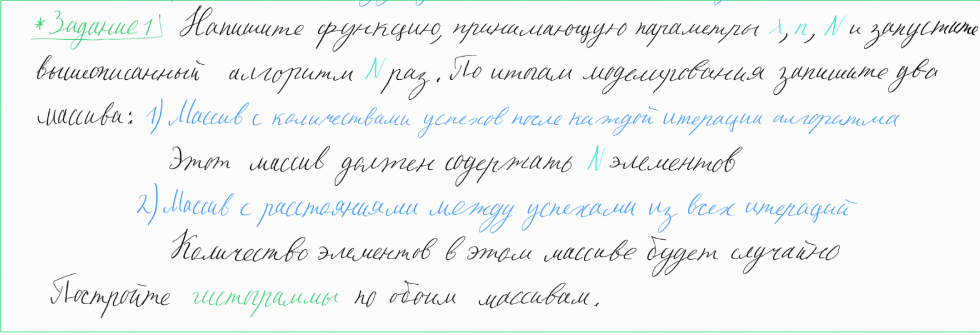 * Задание 1 Напишите функцию, принимающую параметры λ, n, N и запустите
вышеописанный алгоритм N раз. По итогам моделирования запишите два
массива: 1) Массив с количествами успехов после каждой итерации алгоритма
Этот массив должен содержать N элементов
2) Массив с расстояниями между успехами из всех итераций
Количество элементов в этом массиве будет случайно
Постройте гистограммы по обоим массивам.